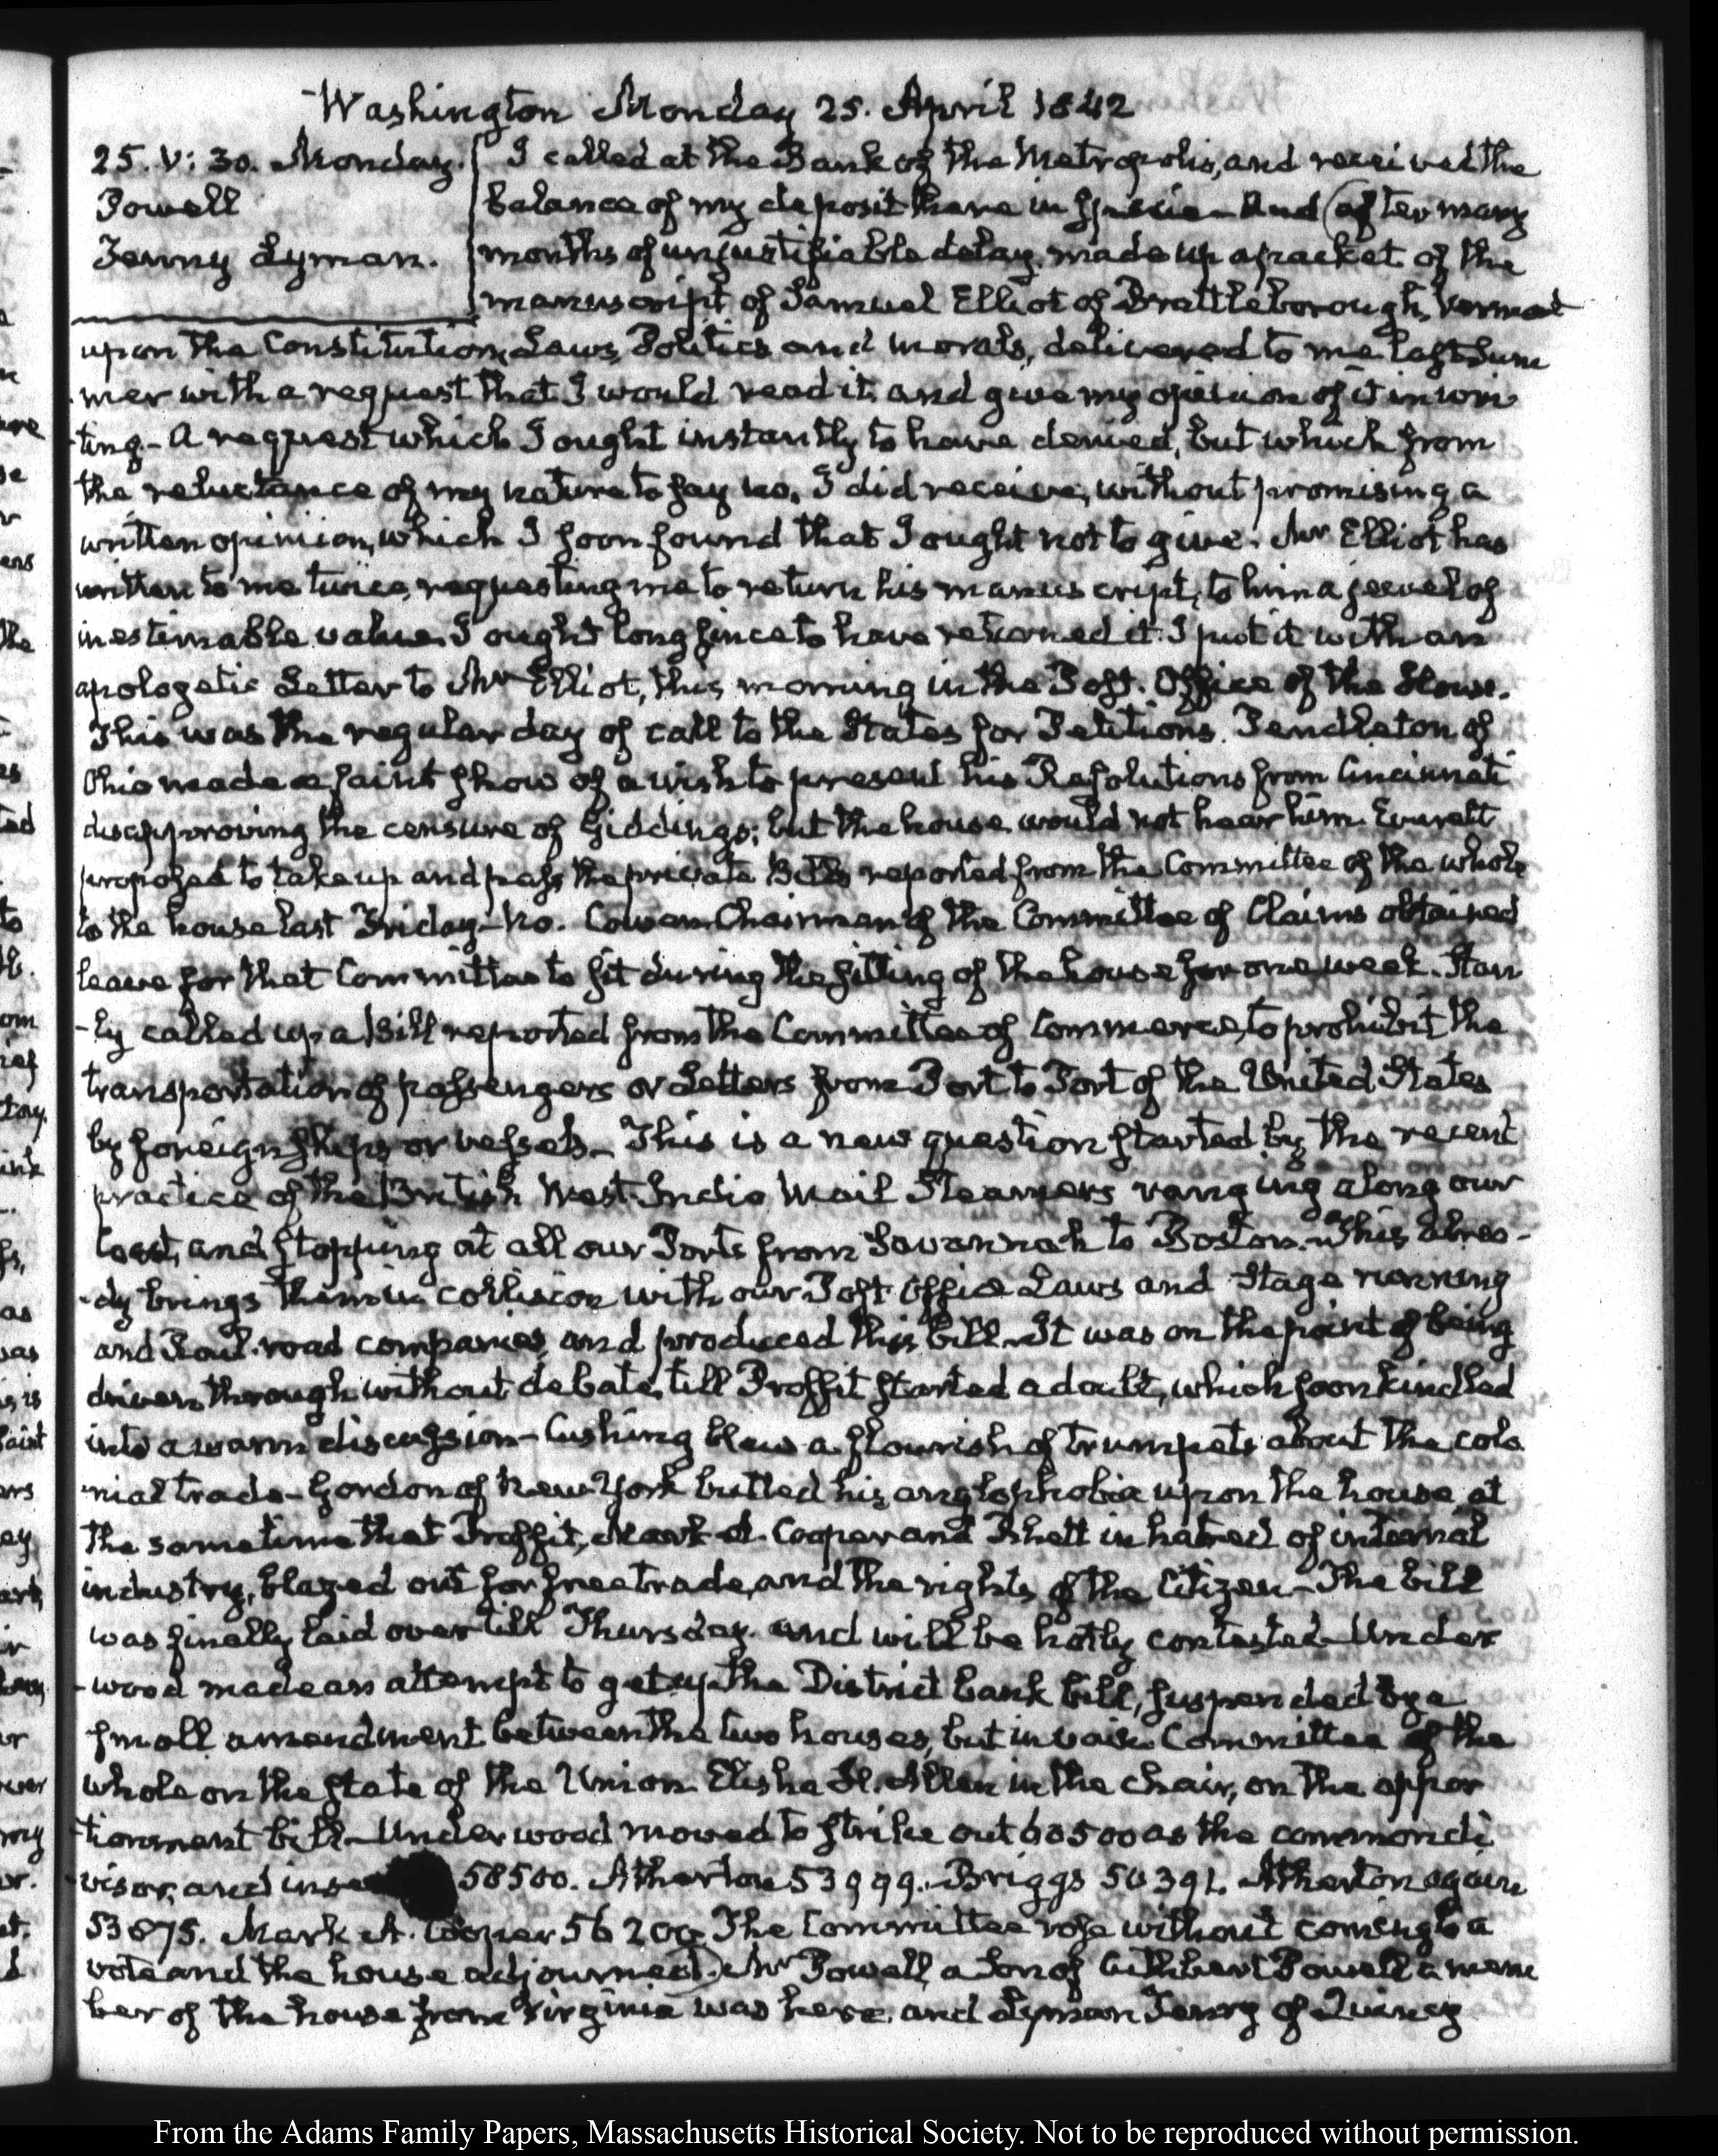 Washington Monday 25. April 1842
25. V: 30. Monday.
Powell
Tenny Lyman.
I called at the Bank of the Metropolis, and received the
balance of my deposit there in specie - And after many
months of unjustifiable delay, made up a packet of the
manuscript of Samuel Elliot of Brattleborough, Vermont
upon the Constitution, Laws, Politics and morals, delivered to me last Sum
mer with a request that I would read it, and give my opinion of it in wri-
ting - A request which I ought instantly to have denied, but which from
the reluctance of my nature to say no, I did receive, without promising a
written opinion, which I soon found that I ought not to give. Mr Elliot has
written to me twice, requesting me to return his manuscript, to him a jewel of
inestimable value. I ought long since to have returned it. I put it with an
apologetic Letter to Mr Elliot, this morning in the Post-Office of the House.
This was the regular day of call to the States for Petitions. Pendleton of
Ohio made a faint show of a wish to present his Resolutions from Cincinnati
disapproving the censure of Giddings; but the house would not hear him. Everett
proposed to take up and pass the private Bills reported from the Committee of the whole
to the house last Friday - No. Cowen Chairman of the Committee of Claims obtained
leave for that Committee to sit during the sitting of the house for one week. Stan
-ly called up a Bill reported from the Committee of Commerce, to prohibit the
transportation of passengers or Letters from Port to Port of the United States
by foreign ships or vessels - This is a new question started by the recent
practice of the British West-India Mail Steamers ranging along our
Coast, and stopping at all our Ports from Savannah to Boston. This alrea-
-dy brings them in collision with our Post-Office Laws and Stage running
and Rail-road companies, and produced this bill - It was on the point of being
driven through without debate, till Proffit started a doubt, which soon kindled
into a warm discussion - Cushing blew a flourish of trumpets about the colo
-nial trade - Gordon of New-York butted his anglophobia upon the house, at
the same time that Proffit, Mark A. Cooper and Rhett in hatred of internal
industry, blazed out for free trade, and the rights of the Citizen - The bill
was finally laid over till Thursday and will be hotly contested - Under
-wood made an attempt to get up the District bank bill, suspended by a
small amendment between the two houses, but in vain. Committee of the
whole on the state of the Union. Elisha H. Allen in the chair, on the appor
-tionment bill - Underwood moved to strike out 60500 as the common di
-visor, and 58500. Atherton 53999. Briggs 50391. Atherton again
53875. Mark A. Cooper 56200. The Committee rose without coming to a
vote and the house adjourned. Mr Powell, a Son of Cuthbert Powell a mem
ber of the house from Virginia was here, and Lyman Tenny of Quincy
From the Adams Family Papers, Massachusetts Historical Society. Not to be reproduced without permission.